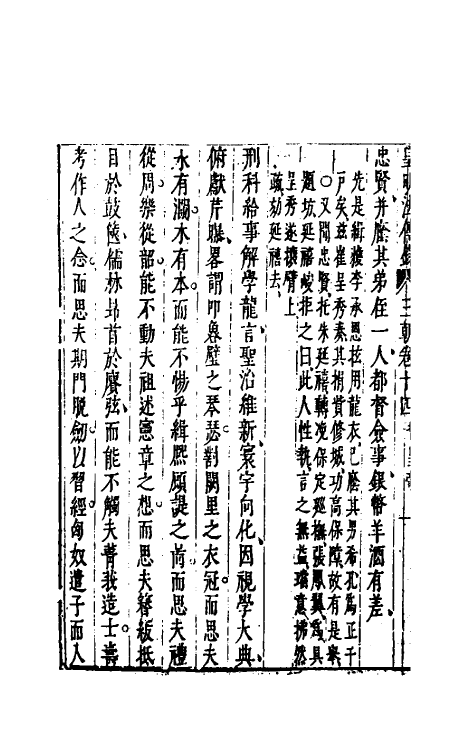 皇明法傳錄 三朝卷十四
忠賢并廕其弟侄一人都督僉事銀幣羊酒有差
先是緝獲李承恩擅用龍衣已廕其男希孔為正千
戶矣茲崔呈秀奏其捐貲修城功高保障故有是舉
○又聞忠賢托朱延禧轉浼保定廵撫張鳳翼為具
題坊延禧峻拒之曰此人性執言之無益璫意拂然
呈秀遂攘臂上
疏劾延禧去
刑科給事解學龍言聖治維新寰宇向化因視學大典
俯獻芹曝畧謂叩魯壁之琴瑟對闕里之衣冠而思夫
水有瀾木有本而能不惕乎緝熙顧諟之旨而思夫禮
從周樂從韶能不動夫祖述憲章之想而思夫簪板抵
目於鼓篋儒林昂首於賡弦而能不觸夫菁莪造士壽
考作人之念而思夫期門脫劍以習經匈奴遣子而入